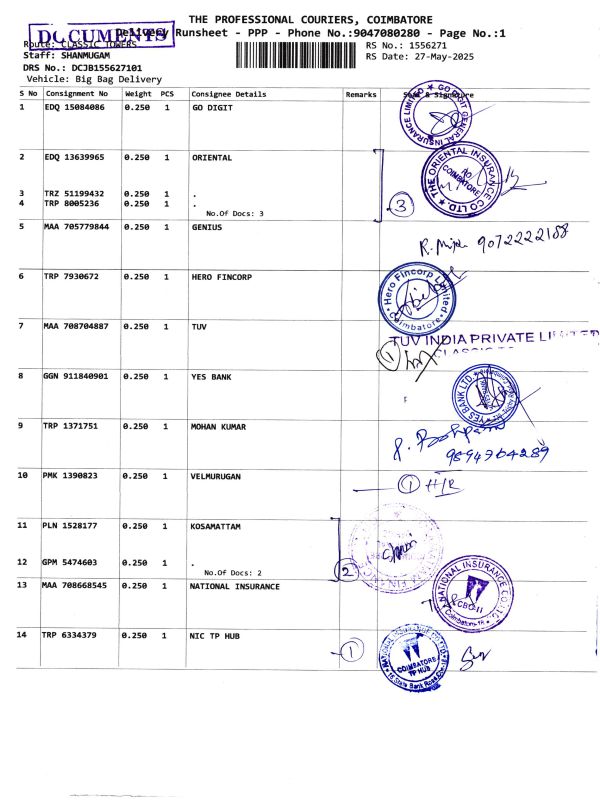 THE PROFESSIONAL COURIERS, COIMBATORE
DOCUMENTS
Delivery Runsheet - PPP - Phone No.:9047080280 - Page No.:1
Route: CLASSIC TOWERS
RS No.: 1556271
Staff: SHANMUGAM
RS Date: 27-May-2025
DRS No.: DCJB155627101
Vehicle: Big Bag Delivery
S No Consignment No Weight PCS Consignee Details Remarks Seal & Signature
1 EDQ 15084086 0.250 1 GO DIGIT
GO DIGIT GENERAL INSURANCE LIMITED
2 EDQ 13639965 0.250 1 ORIENTAL
THE ORIENTAL INSURANCE CO LTD.
COIMBATORE
3 TRZ 51199432 0.250 1 .
4 TRP 8005236 0.250 1 .
3
No.Of Docs: 3
5 MAA 705779844 0.250 1 GENIUS
9072222188
6 TRP 7930672 0.250 1 HERO FINCORP
Hero Fincorp Limited
Coimbatore
7 MAA 708704887 0.250 1 TUV
TUV INDIA PRIVATE LIMITED
1
8 GGN 911840901 0.250 1 YES BANK
YES BANK LTD.
9 TRP 1371751 0.250 1 MOHAN KUMAR
9894764289
10 PMK 1390823 0.250 1 VELMURUGAN
1 H/R
11 PLN 1528177 0.250 1 KOSAMATTAM
12 GPM 5474603 0.250 1 .
No.Of Docs: 2
2
13 MAA 708668545 0.250 1 NATIONAL INSURANCE
NATIONAL INSURANCE CO. LTD.
CBO-II
Coimbatore-18
14 TRP 6334379 0.250 1 NIC TP HUB
1
COIMBATORE
TP HUB